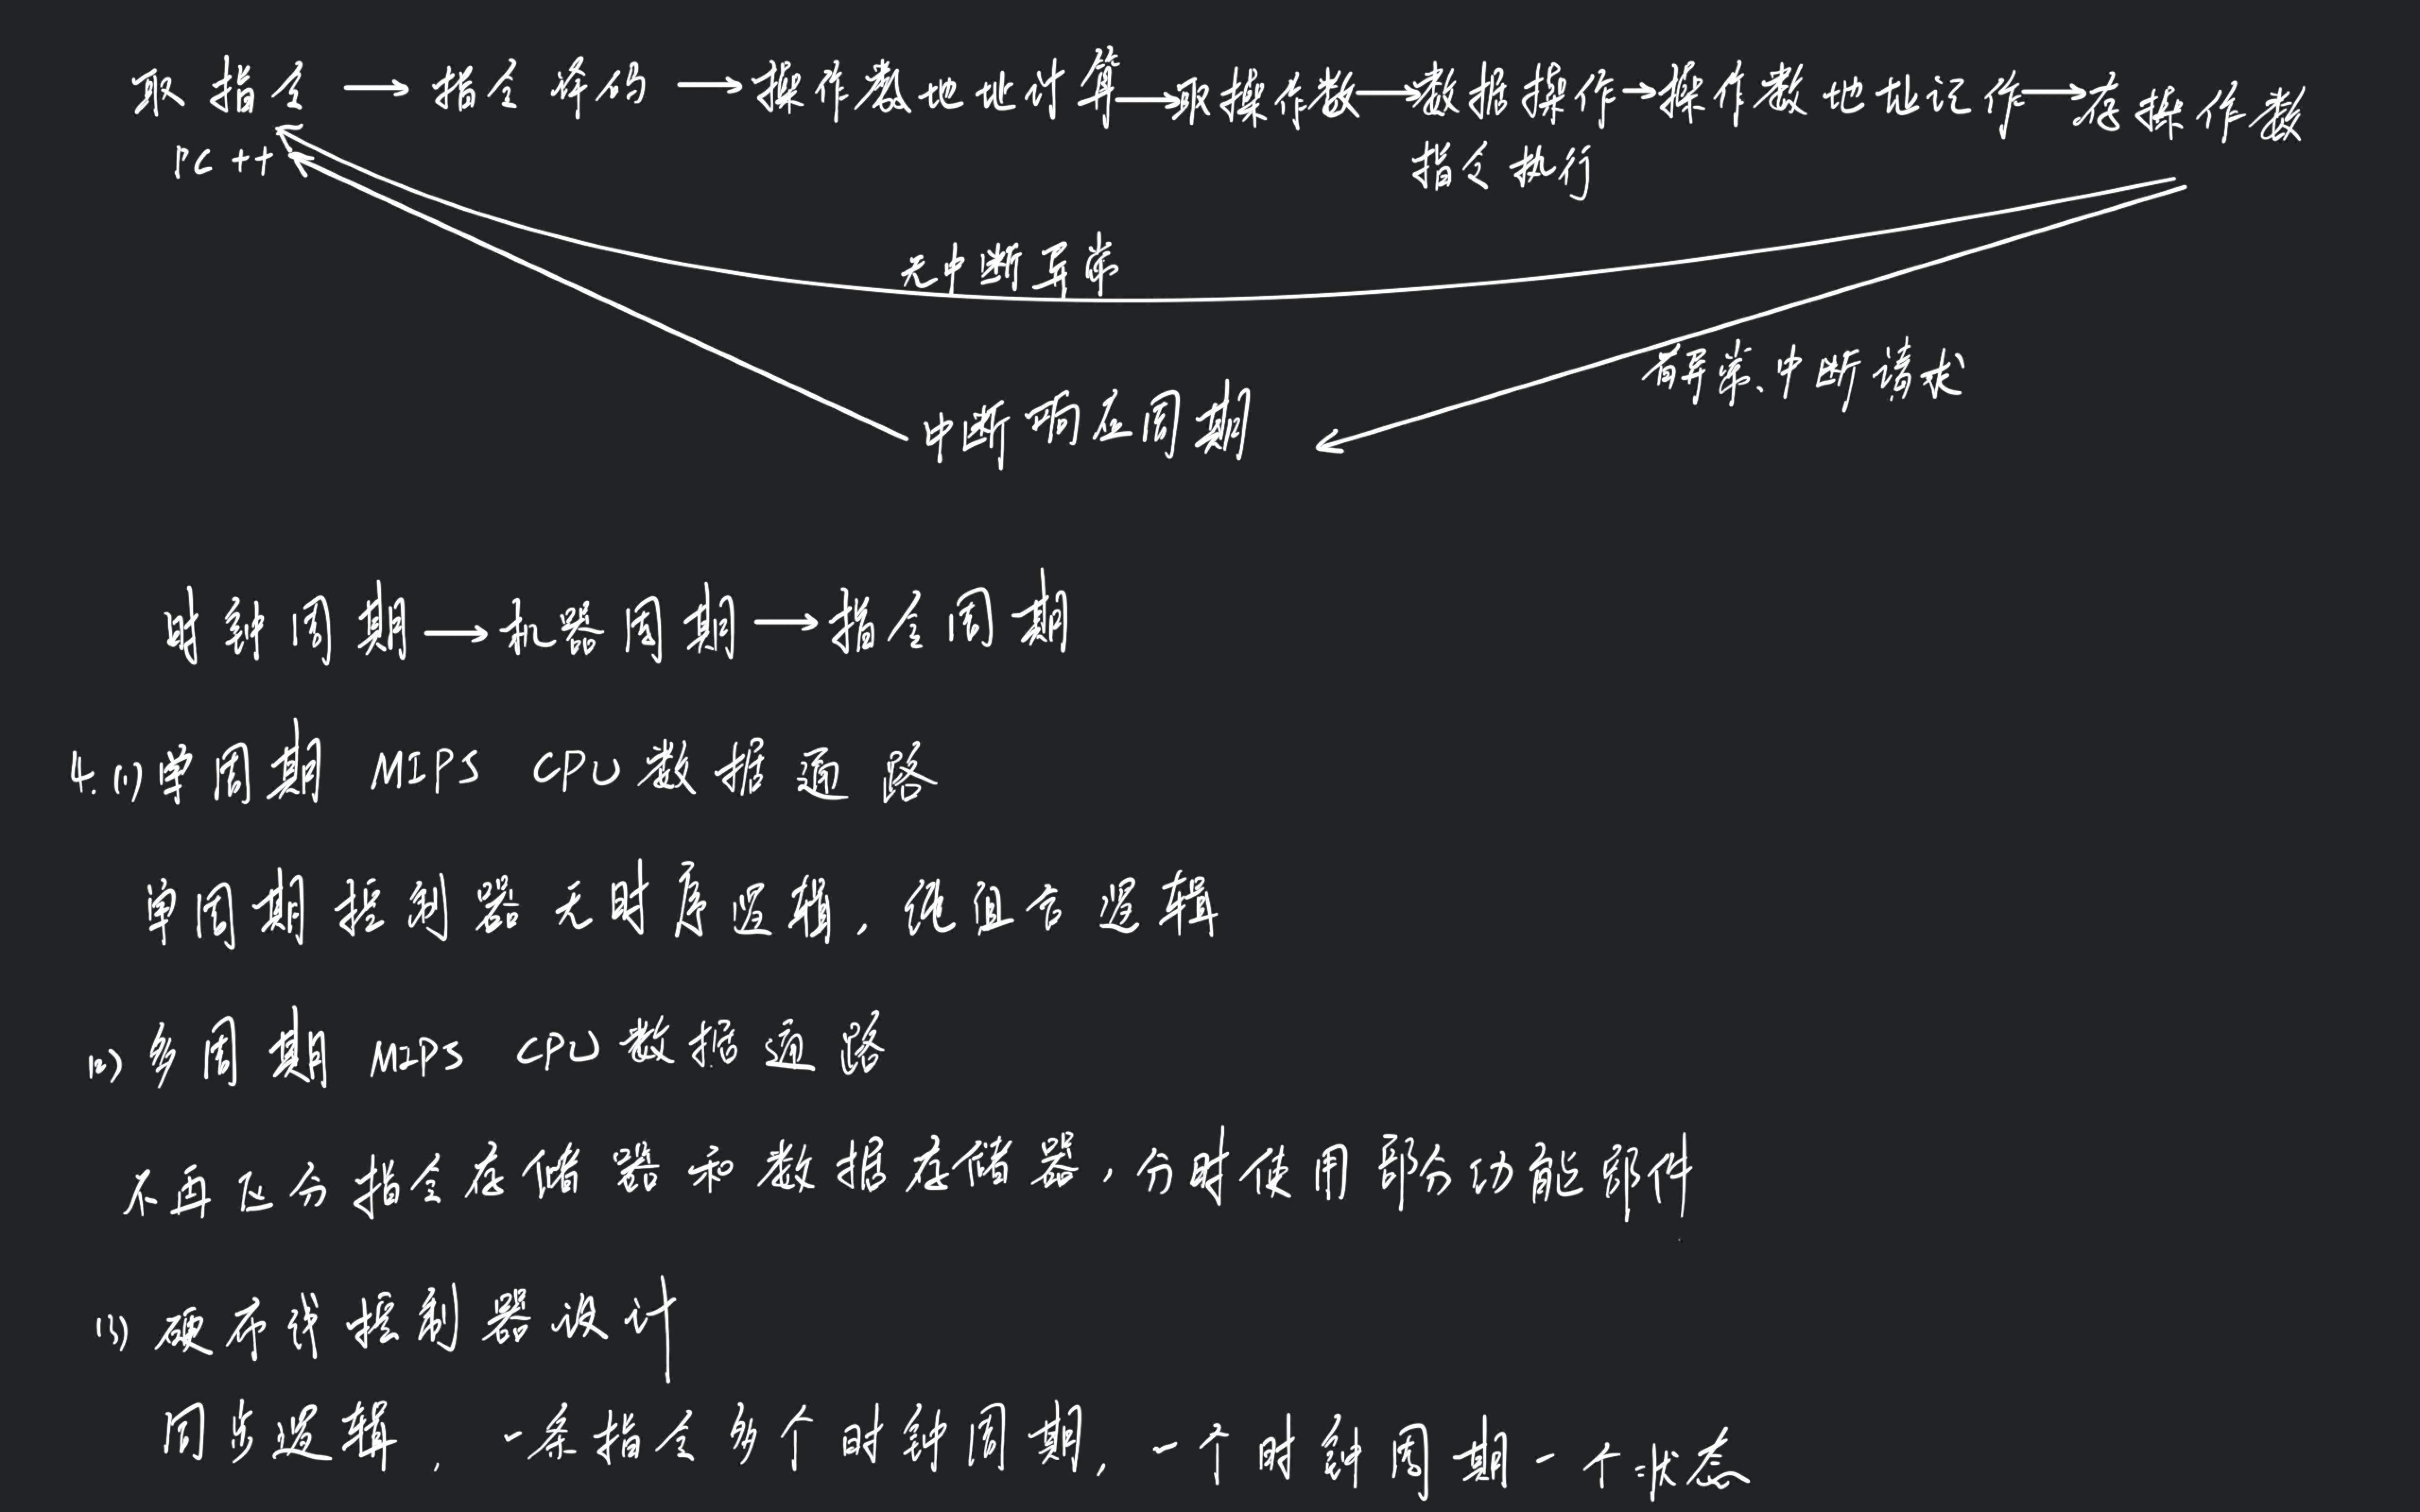 取指令→指令译码→操作数地址计算→取操作数→数据操作→操作数地址记作→存操作数
PC++
指令执行
无中断异常
有异常、中断请求
中断响应周期
时钟周期→机器周期→指令周期
4.(1)单周期 MIPS CPU数据通路
单周期控制器无时序逻辑,纯组合逻辑
(2)多周期 MIPS CPU数据通路
不再区分指令存储器和数据存储器,分时使用部分功能部件
(3)硬布线控制器设计
同步逻辑,一条指令多个时钟周期,一个时钟周期一个状态